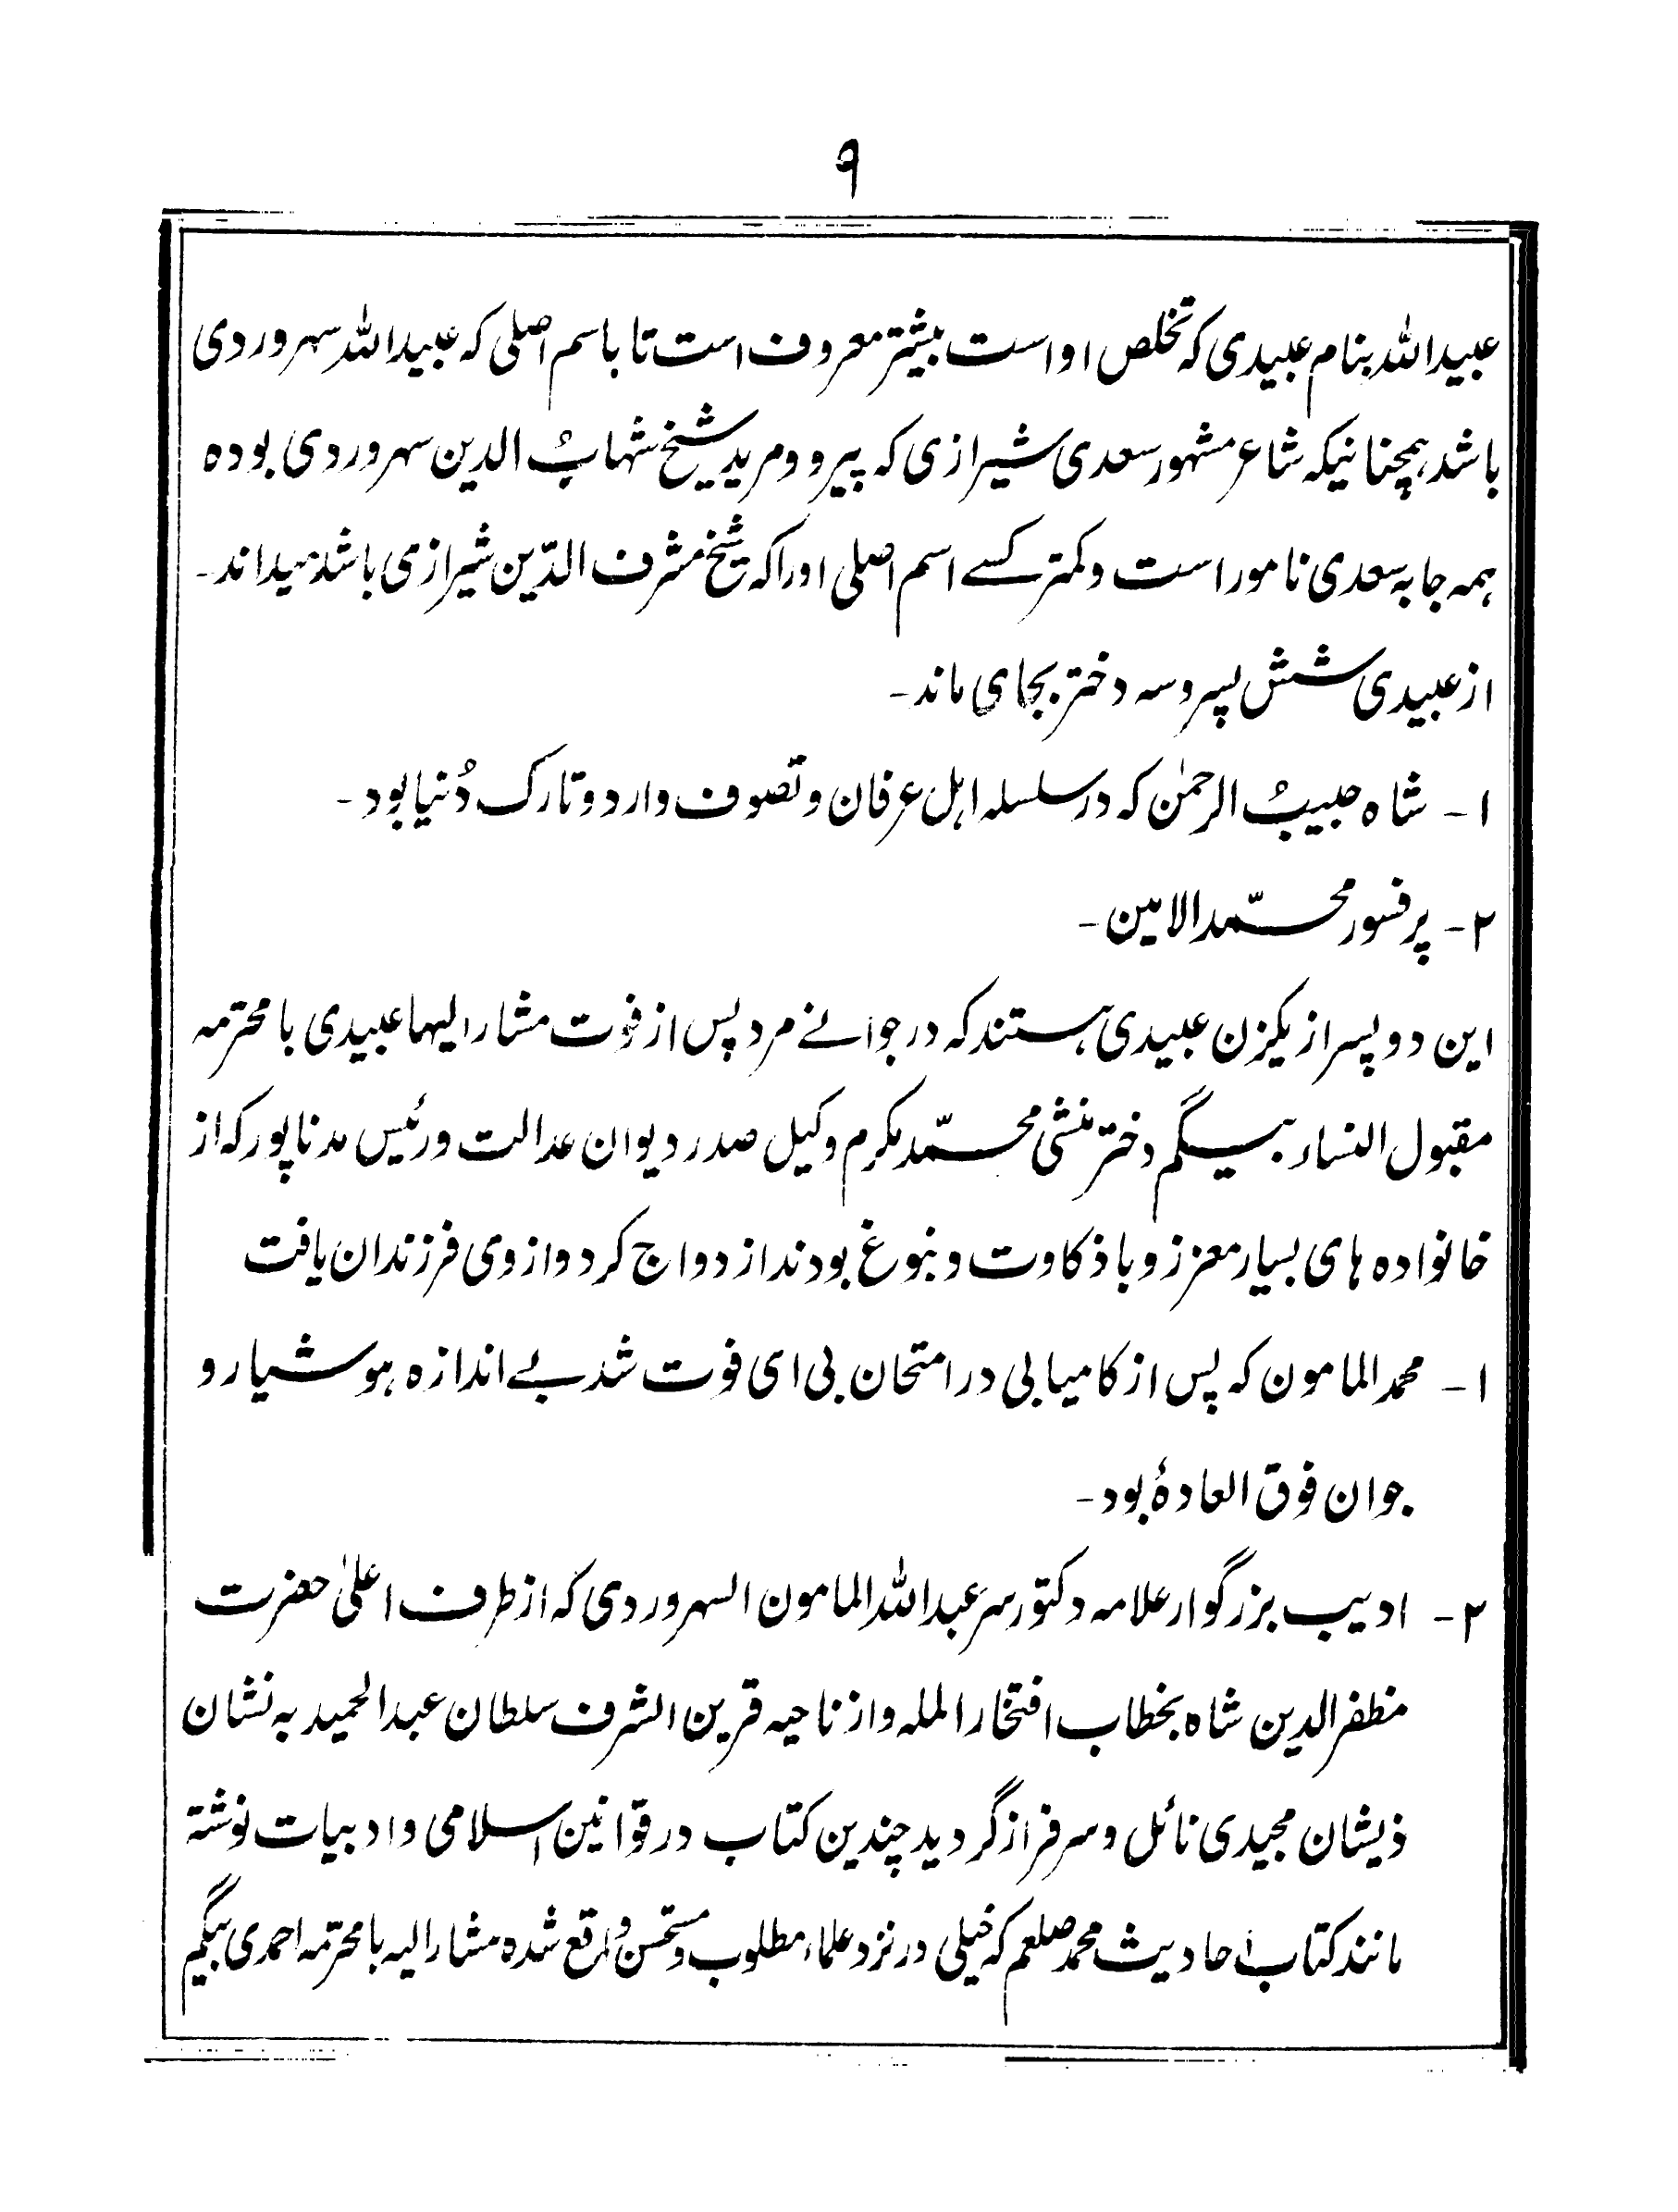 ۹
عبیداللہ بنام عبیدی که تخلص او است بیشتر معروف است تا باسم اصلی که عبیداللہ سهروردی
باشد همچنانیکه شاعر مشهور سعدی شیرازی که پیرو و مرید شیخ شهابُ الدین سهروردی بوده
همه جا به سعدی نامور است و کمتر کسے اسم اصلی اورا که شیخ مشرف الدّین شیرازی باشد میداند۔
از عبیدی شش پسر و سه دختر بجای ماند۔
۱۔ شاه حبیبُ الرحمٰن که در سلسله اهل عرفان و تصوف وارد و تارک دُنیا بود۔
۲۔ پرفسور محمّد الامین۔
این دو پسر از یکزن عبیدی هستند که در جوانے مرد پس از فوت مشار الیها عبیدی با محترمه
مقبول النساء بیگم دختر منشی محمّد مکرم وکیل صدر دیوان عدالت و رئیس مدناپور که از
خانواده های بسیار معزز و با ذکاوت و نبوغ بودند ازدواج کرد و از وی فرزندان یافت
۱۔ محمد المامون که پس از کامیابی در امتحان بی ای فوت شد بے اندازه هوشیار و
جوان فوق العادۂ بود۔
۲۔ ادیب بزرگوار علامه دکتور سر عبداللہ المامون السهروردی که از طرف اعلیٰ حضرت
مظفر الدین شاه بخطاب افتخار المله و از ناحیه قرین الشرف سلطان عبد الحمید به نشان
ذیشان مجیدی نائل و سرفراز گردید چندین کتاب در قوانین اسلامی و ادبیات نوشتہ
مانند کتاب احادیث محمد صلعم که خیلی در نزد علماء مطلوب و مستحسن واقع شده مشار الیه با محترمه احمدی بیگم